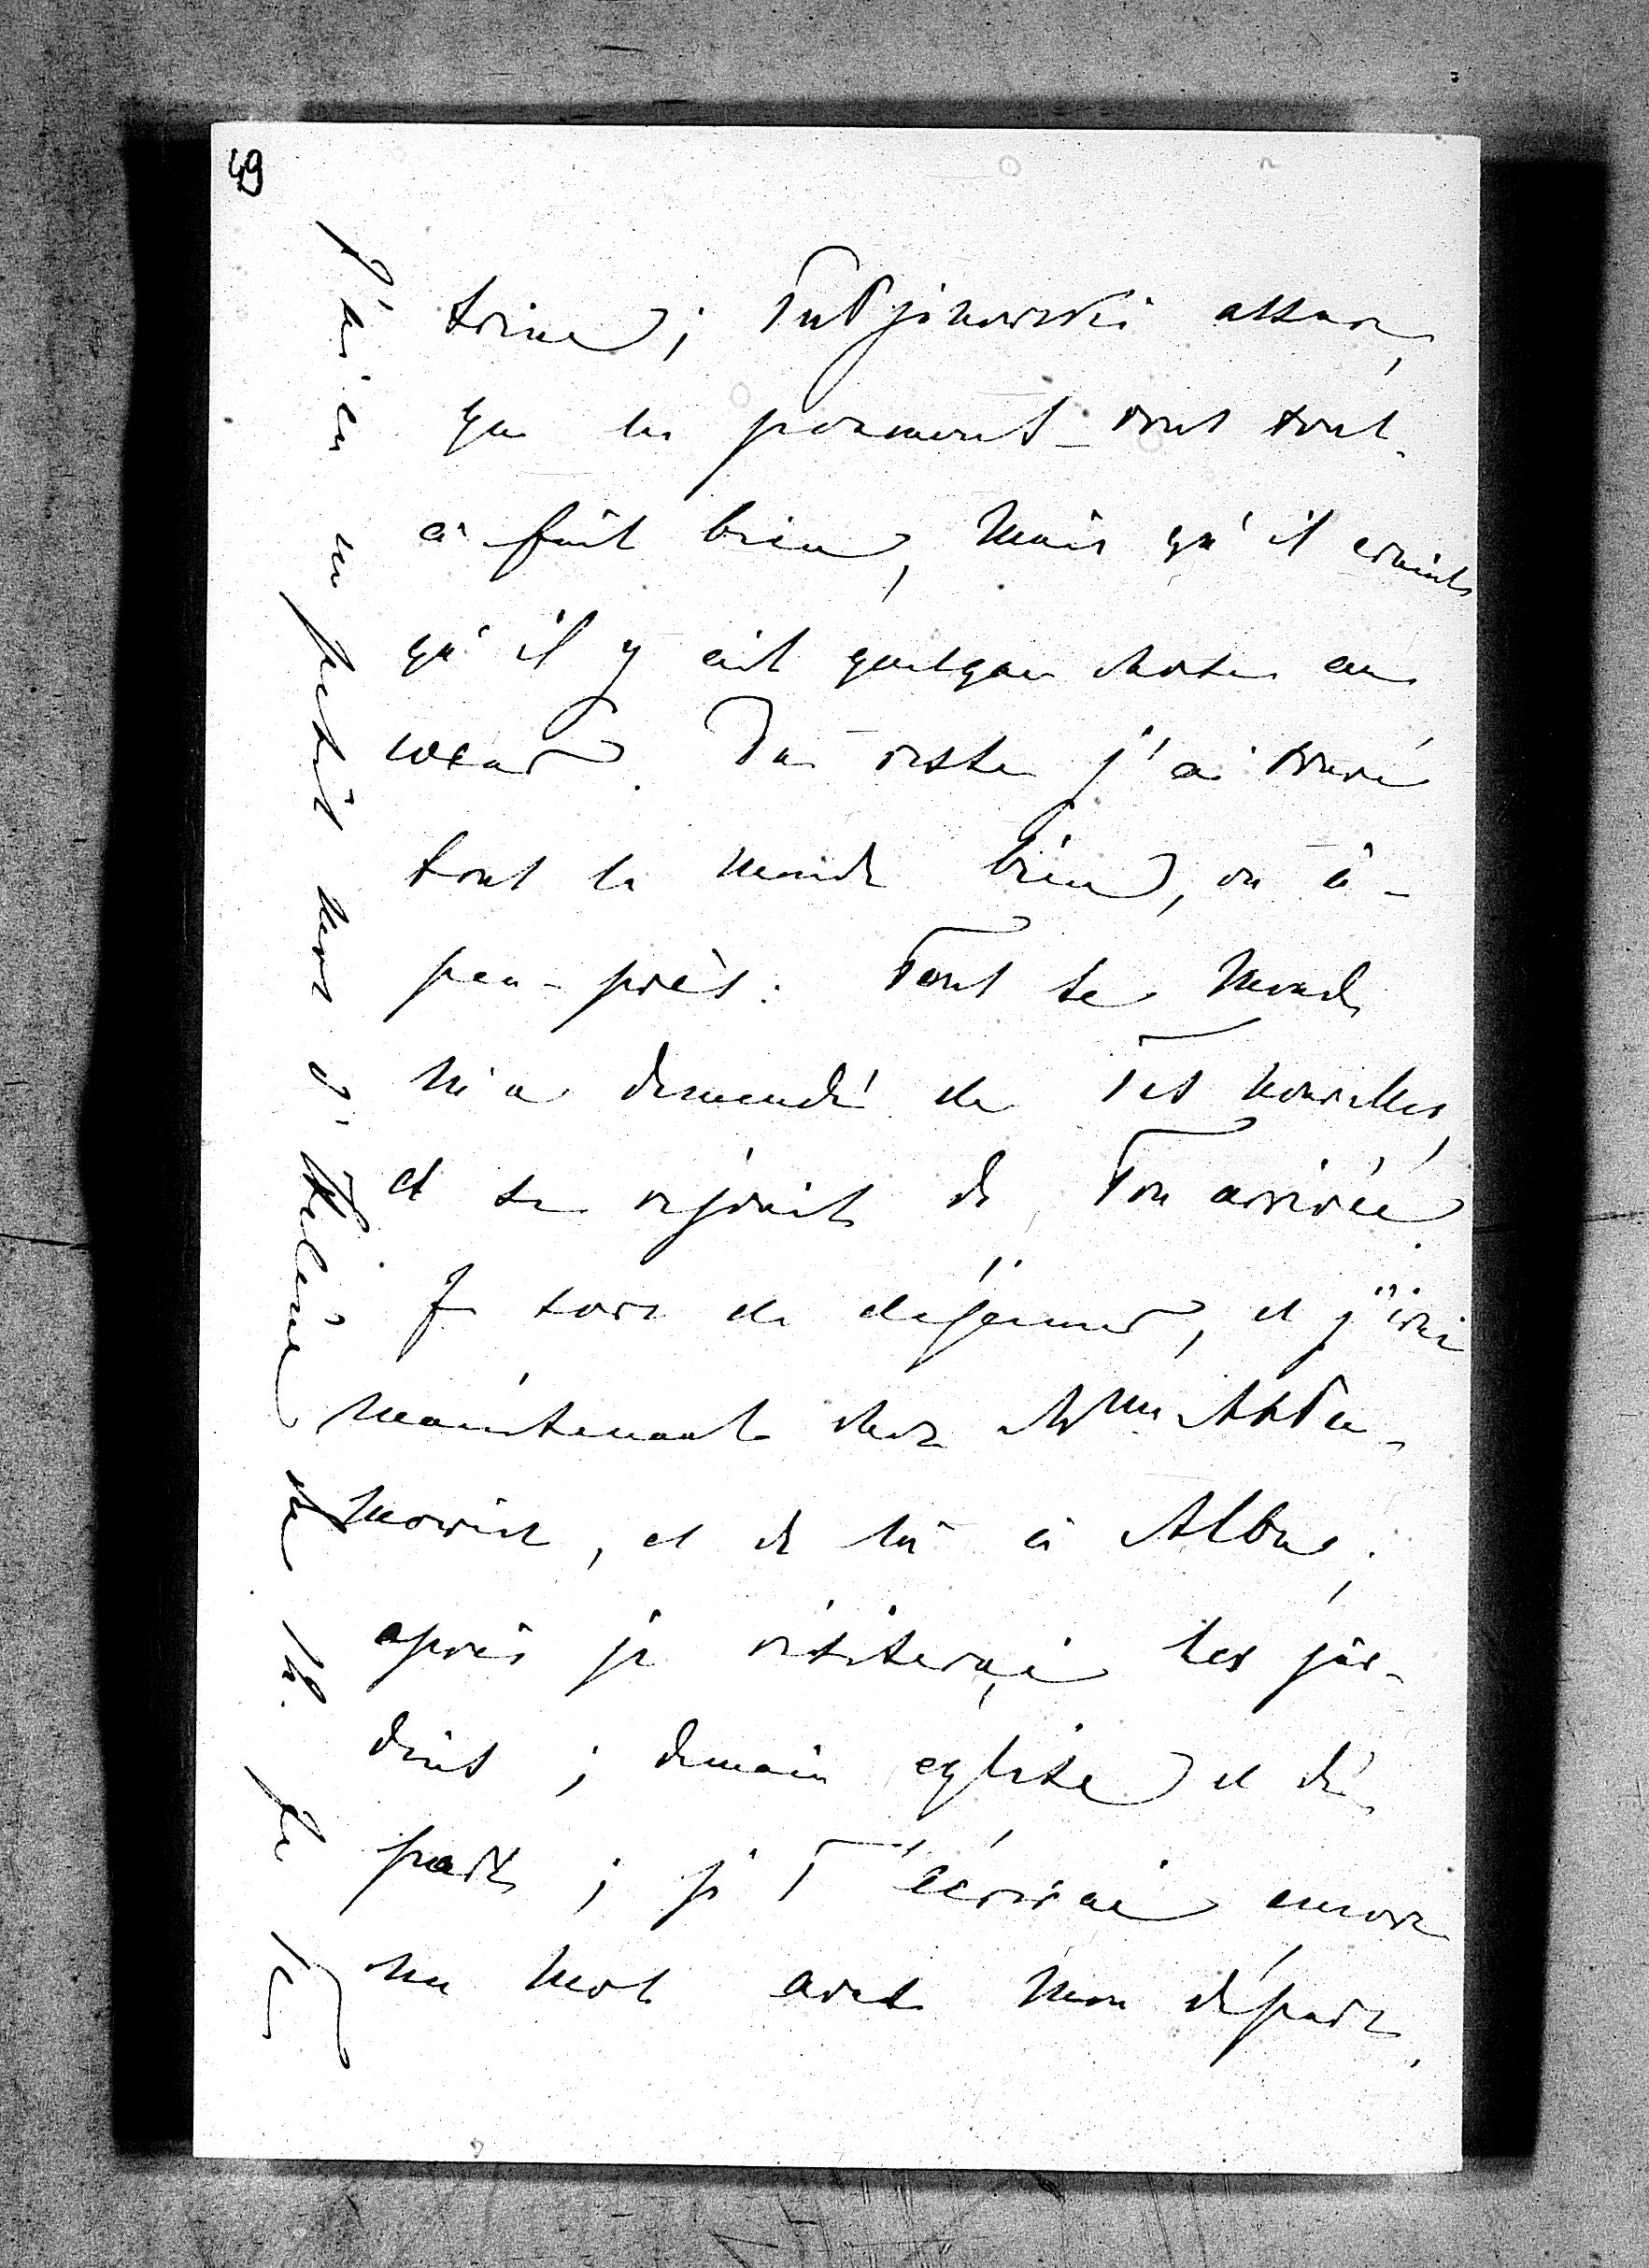 49
trine; assure,
que les poumons sont tout-
à-fait bien, mais qu'il craint
qu'il y ait quelque chose au
coeur. Du reste j'ai trouvé
tout le monde bien, ou à-
peu-près. Tout le monde
m'a demandé de Tes nouvelles,
et se rejouit de Ton arrivée.
Je sors de dejeuner, et j'irai
maintenant chez Mme Abba-
, et de là à Alba;
après je visiterai les jar-
dins; demain eglise et dé-
part; je T'écrirai encore
un mot avant mon départ.
J'ai eu un petit mot d'Hélène